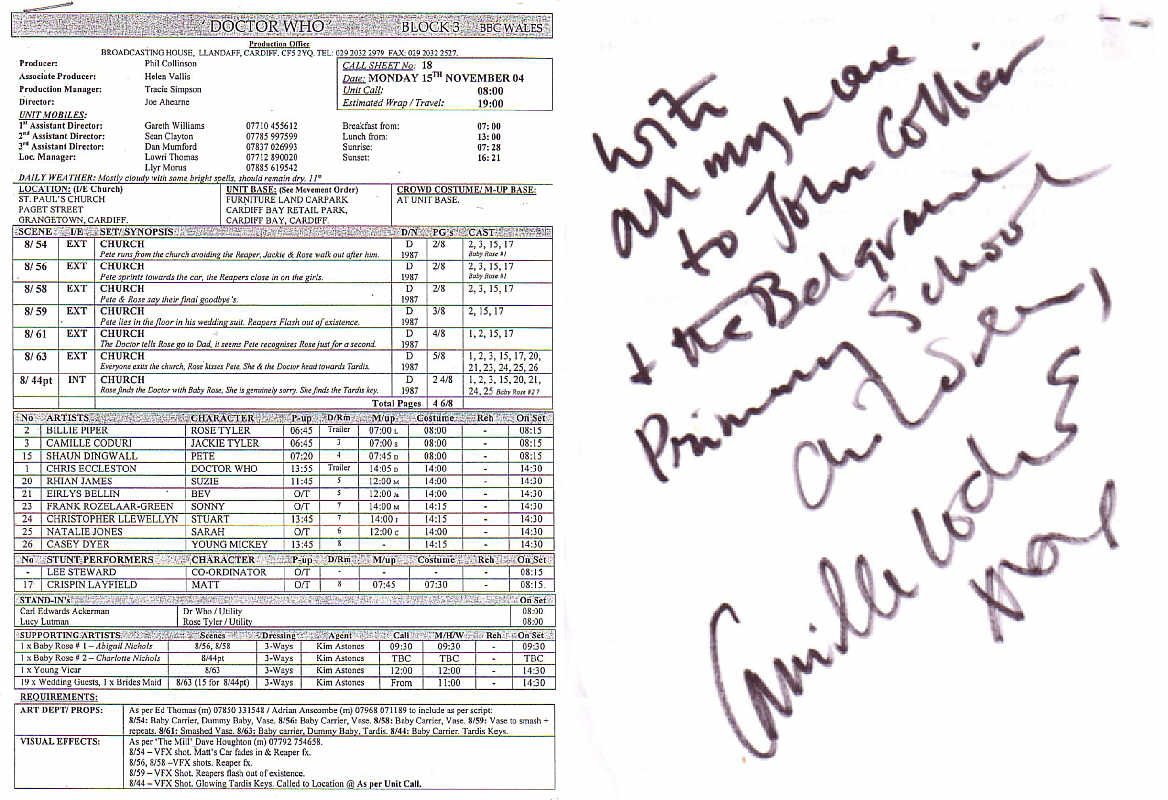 'DOCTOR WHO' BLOCK 3 BBC WALES
Production Office
BROADCASTING HOUSE, LLANDAFF, CARDIFF. CF5 2YQ. TEL: 029 2032 2979 FAX: 029 2032 2527.
Producer: Phil Collinson
Associate Producer: Helen Vallis
Production Manager: Tracie Simpson
Director: Joe Ahearne
CALL SHEET No: 18
Date: MONDAY 15TH NOVEMBER 04
Unit Call: 08:00
Estimated Wrap / Travel: 19:00
UNIT MOBILES:
1st Assistant Director: Gareth Williams 07710 455612 Breakfast from: 07:00
2nd Assistant Director: Sean Clayton 07785 997599 Lunch from: 13:00
3rd Assistant Director: Dan Mumford 07837 026993 Sunrise: 07:28
Loc. Manager: Lowri Thomas 07712 890020 Sunset: 16:21
Llyr Morus 07885 619542
DAILY WEATHER: Mostly cloudy with some bright spells, should remain dry. 11°
LOCATION: (I/E Church) UNIT BASE: (See Movement Order) CROWD COSTUME/ M-UP BASE:
ST. PAUL'S CHURCH FURNITURE LAND CARPARK AT UNIT BASE.
PAGET STREET CARDIFF BAY RETAIL PARK,
GRANGETOWN, CARDIFF. CARDIFF BAY, CARDIFF.
SCENE I/E SET/ SYNOPSIS D/N PG's CAST
8/ 54 EXT CHURCH D 2/8 2, 3, 15, 17
Pete runs from the church avoiding the Reaper, Jackie & Rose walk out after him. 1987 Baby Rose #1
8/ 56 EXT CHURCH D 2/8 2, 3, 15, 17
Pete sprints towards the car, the Reapers close in on the girls. 1987 Baby Rose #1
8/ 58 EXT CHURCH D 2/8 2, 3, 15, 17
Pete & Rose say their final goodbye's. 1987
8/ 59 EXT CHURCH D 3/8 2, 15, 17
Pete lies in the floor in his wedding suit. Reapers Flash out of existence. 1987
8/ 61 EXT CHURCH D 4/8 1, 2, 15, 17
The Doctor tells Rose go to Dad, it seems Pete recognises Rose just for a second. 1987
8/ 63 EXT CHURCH D 5/8 1, 2, 3, 15, 17, 20,
Everyone exits the church, Rose kisses Pete, She & the Doctor head towards Tardis. 1987 21, 23, 24, 25, 26
8/ 44pt INT CHURCH D 2 4/8 1, 2, 3, 15, 20, 21,
Rose finds the Doctor with Baby Rose, She is genuinely sorry. She finds the Tardis key. 1987 24, 25 Baby Rose #2 ?
Total Pages 4 6/8
No ARTISTS CHARACTER P-up D/Rm M/up Costume Reh On Set
2 BILLIE PIPER ROSE TYLER 06:45 Trailer 07:00 L 08:00 - 08:15
3 CAMILLE CODURI JACKIE TYLER 06:45 3 07:00 S 08:00 - 08:15
15 SHAUN DINGWALL PETE 07:20 4 07:45 D 08:00 - 08:15
1 CHRIS ECCLESTON DOCTOR WHO 13:55 Trailer 14:05 D 14:00 - 14:30
20 RHIAN JAMES SUZIE 11:45 5 12:00 M 14:00 - 14:30
21 EIRLYS BELLIN BEV O/T 5 12:00 14:00 - 14:30
23 FRANK ROZELAAR-GREEN SONNY O/T 7 14:00 M 14:15 - 14:30
24 CHRISTOPHER LLEWELLYN STUART 13:45 7 14:00 14:15 - 14:30
25 NATALIE JONES SARAH O/T 6 12:00 C 14:00 - 14:30
26 CASEY DYER YOUNG MICKEY 13:45 8 - 14:15 - 14:30
No STUNT PERFORMERS CHARACTER P-up D/Rm M/up Costume Reh On Set
- LEE STEWARD CO-ORDINATOR O/T - - - - 08:15
17 CRISPIN LAYFIELD MATT O/T 8 07:45 07:30 - 08:15
STAND-IN's On Set
Carl Edwards Ackerman Dr Who / Utility 08:00
Lucy Lutman Rose Tyler / Utility 08:00
SUPPORTING ARTISTS Scenes Dressing Agent Call M/H/W Reh On Set
1 x Baby Rose # 1 – Abigail Nichols 8/56, 8/58 3-Ways Kim Astones 09:30 09:30 - 09:30
1 x Baby Rose # 2 – Charlotte Nichols 8/44pt 3-Ways Kim Astones TBC TBC - TBC
1 x Young Vicar 8/63 3-Ways Kim Astones 12:00 12:00 - 14:30
19 x Wedding Guests, 1 x Brides Maid 8/63 (15 for 8/44pt) 3-Ways Kim Astones From 11:00 - 14:30
REQUIREMENTS:
ART DEPT/ PROPS: As per Ed Thomas (m) 07850 331548 / Adrian Anscombe (m) 07968 071189 to include as per script:
8/54: Baby Carrier, Dummy Baby, Vase. 8/56: Baby Carrier, Vase. 8/58: Baby Carrier, Vase. 8/59: Vase to smash +
repeats. 8/61: Smashed Vase. 8/63: Baby carrier, Dummy Baby, Tardis. 8/44: Baby Carrier. Tardis Keys.
VISUAL EFFECTS: As per 'The Mill' Dave Houghton (m) 07792 754658.
8/54 – VFX shot. Matt's Car fades in & Reaper fx.
8/56, 8/58 –VFX shots. Reaper fx.
8/59 – VFX Shot. Reapers flash out of existence.
8/44 – VFX Shot. Glowing Tardis Keys. Called to Location @ As per Unit Call.
With
all my love
to John Collier
+ the Belgrave
Primary School
Camille Coduri